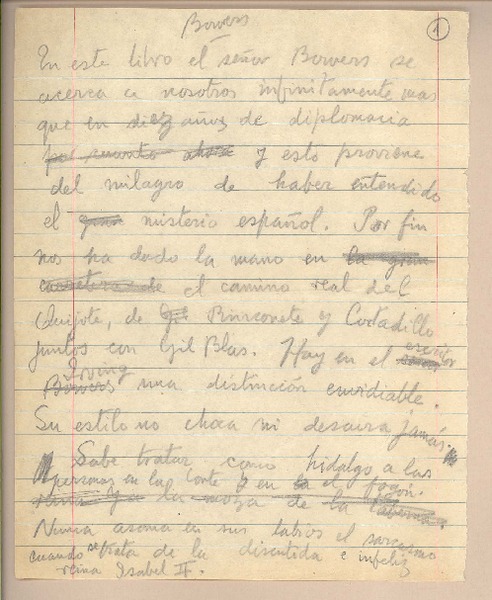 Bowers
1
En este libro el señor Bowers se
acerca a nosotros infinitamente mas
que en diez años de diplomacia
por cuanto ahora y esto proviene
del milagro de haber entendido
el misterio español. Por fin
nos ha dado la mano en la gran
carretera de el camino real del
Quijote, de Gil Rinconete y Cortadillo
juntos con Gil Blas. Hay en el escritor
Irving
Bowers una distinción envidiable.
Su estilo no choca ni desaira jamás.
Sabe tratar como hidalgo a las
personas en la Corte y en el fogón.
la moza de la taberna.
Nunca asoma en sus labios el sarcasmo
cuando se trata de la discutida e infeliz
reina Isabel II.